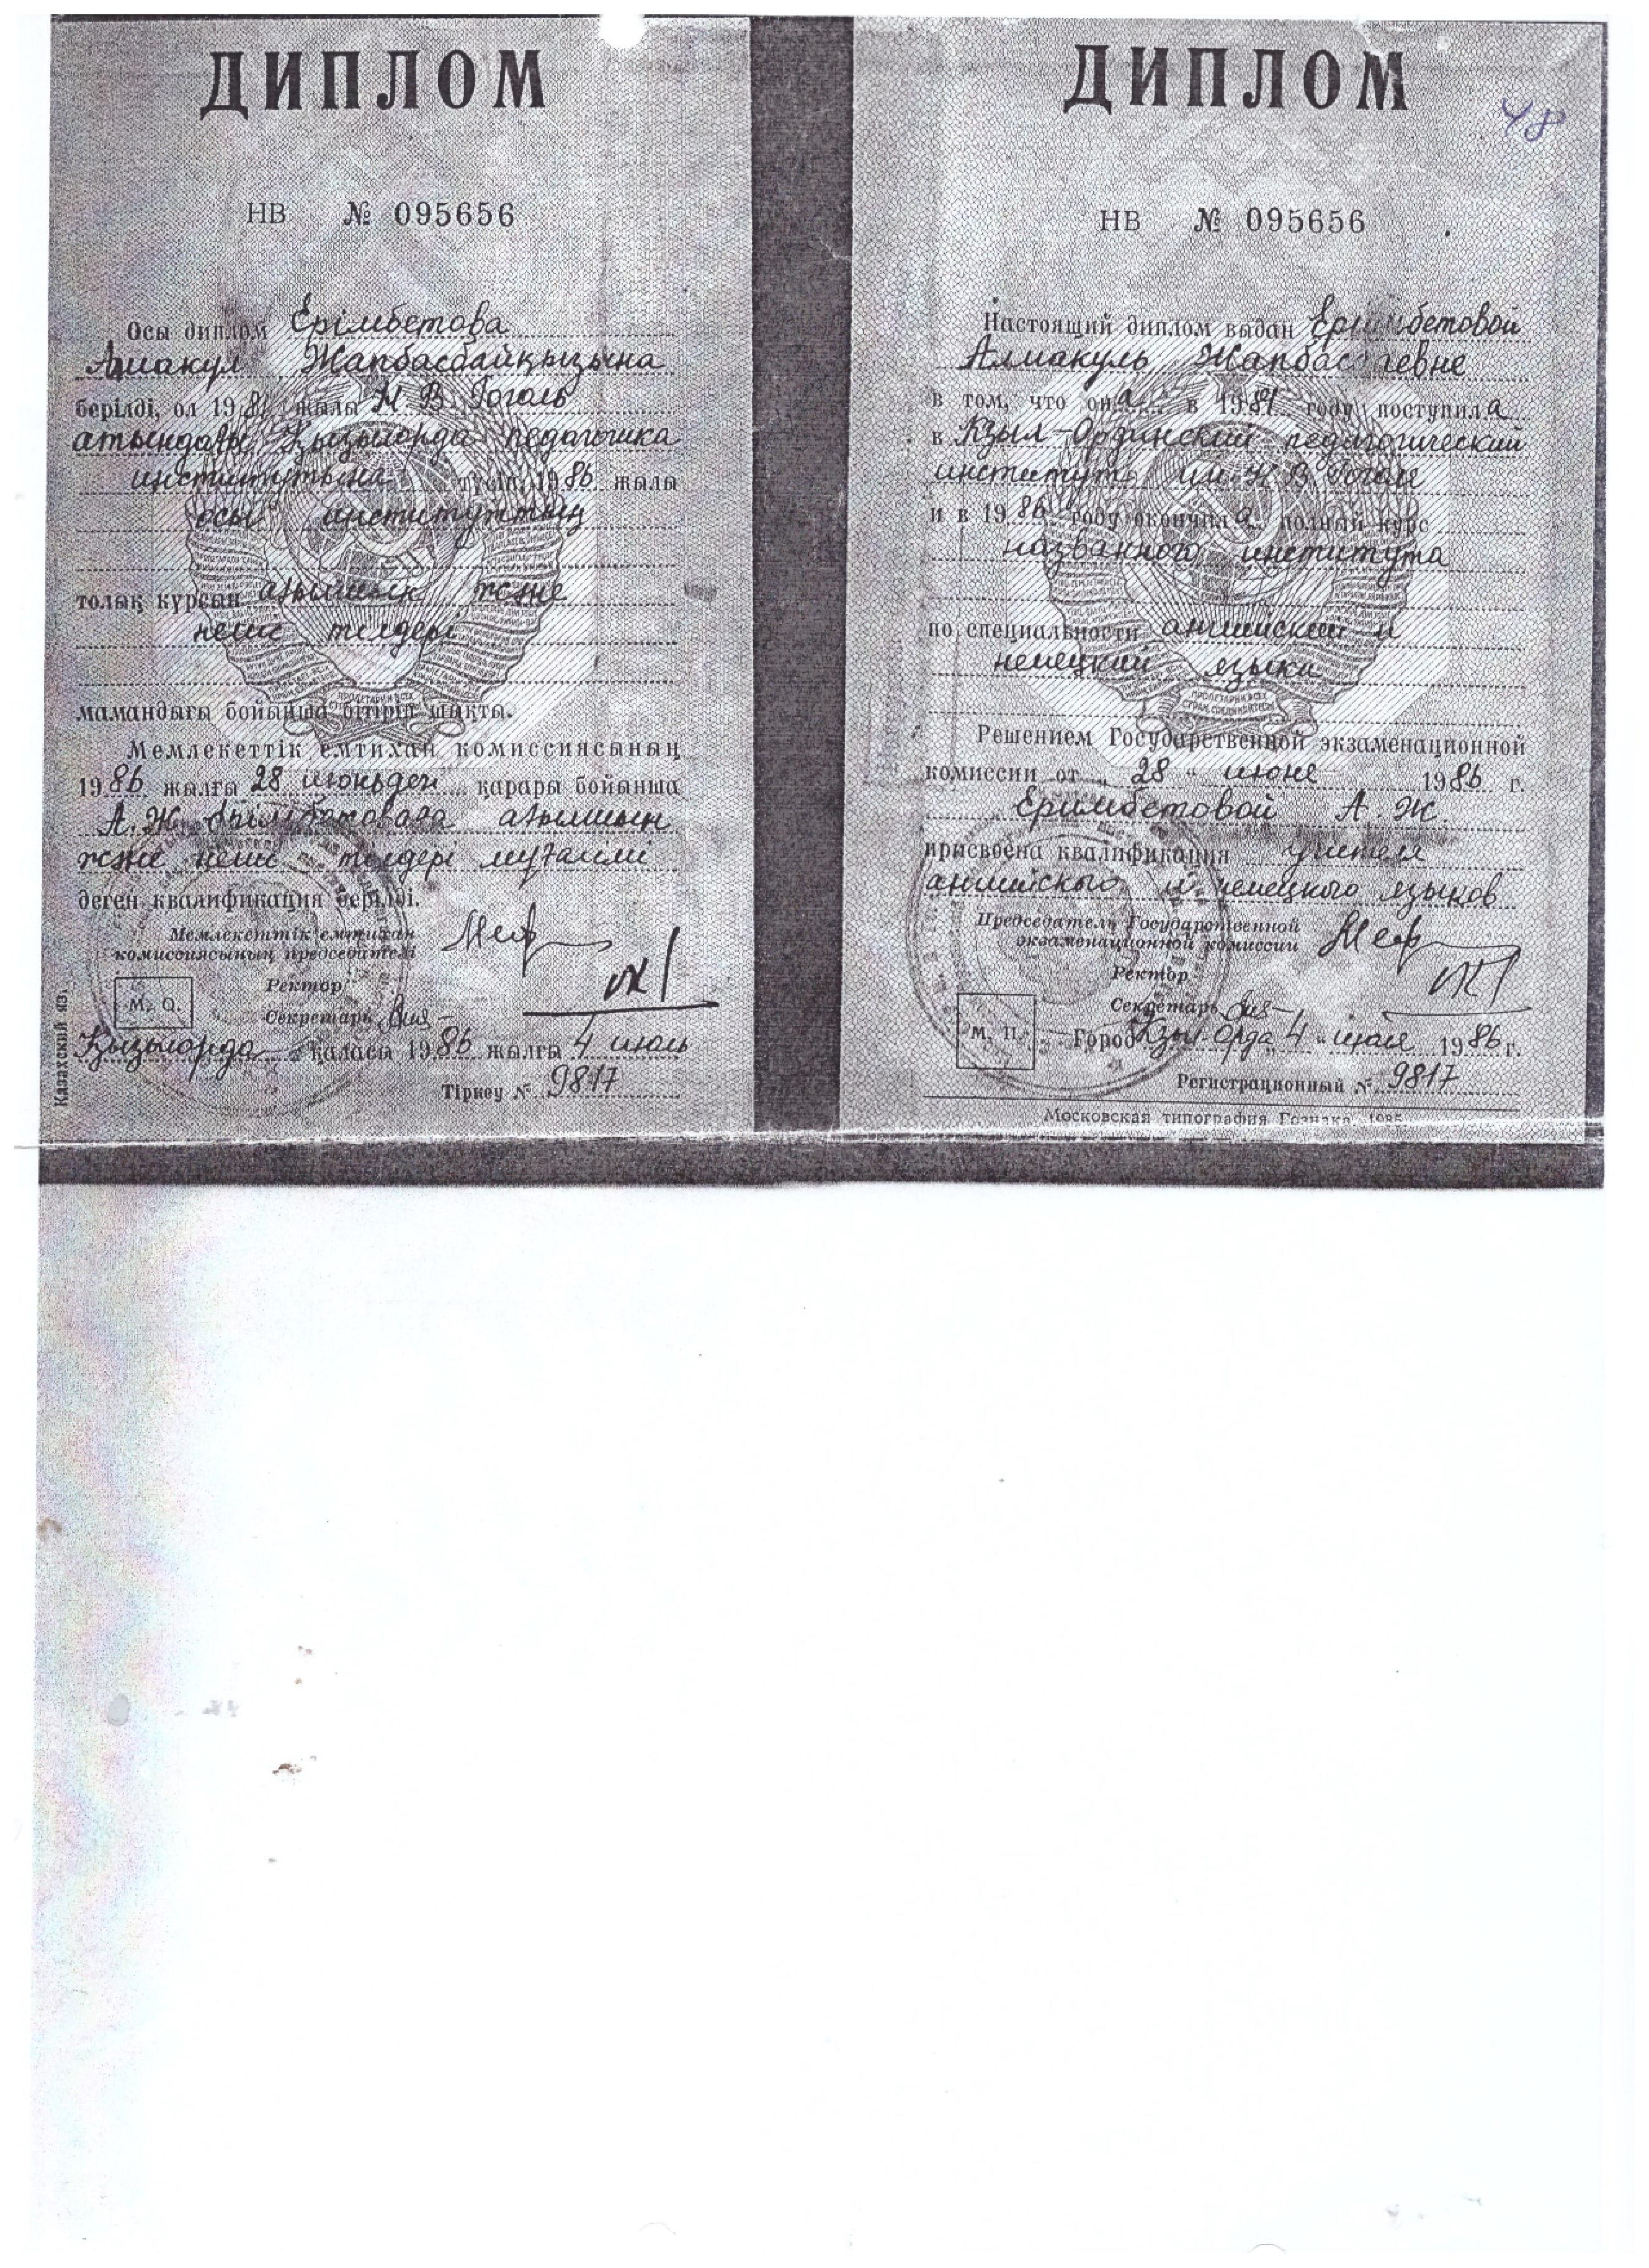 ДИПЛОМ
НВ № 095656
Осы диплом Ерімбетова
Алмакул Жапбасбайқызына
берілді, ол 1981 жылы Н В Гоголь
атындағы Қызылорда педагогика
институтына түсіп, 1986 жылы
осы институттың
толық курсын ағылшын және
неміс тілдері
мамандығы бойынша бітіріп шықты.
Мемлекеттік емтихан комиссиясының
1986 жылғы 28 июньдегі қарары бойынша
А.Ж. ағылшын
және неміс тілдері мұғалімі
деген квалификация берілді.
Мемлекеттік емтихан
комиссиясының председателі
Ректор
М. О.
Секретарь
Қызылорда қаласы 1986 жылғы 4 июль
Тіркеу № 9817
Казахский яз.
ДИПЛОМ
48
НВ № 095656
Настоящий диплом выдан Еримбетовой
Алмакуль
в том, что она в 1981 году поступила
в Кзыл-Ординский педагогический
институт им. Н В Гоголя
и в 1986 году окончила полный курс
названного института
по специальности английский и
немецкий языки
Решением Государственной экзаменационной
комиссии от „ 28 “ июня 1986 г.
Еримбетовой А. Ж.
присвоена квалификация учителя
английского и немецкого языков
Председатель Государственной
экзаменационной комиссии
Ректор
Секретарь
М. П.
Город Кзыл-Орда „ 4 “ июля 1986 г.
Регистрационный № 9817
Московская типография Гознака. 1985.